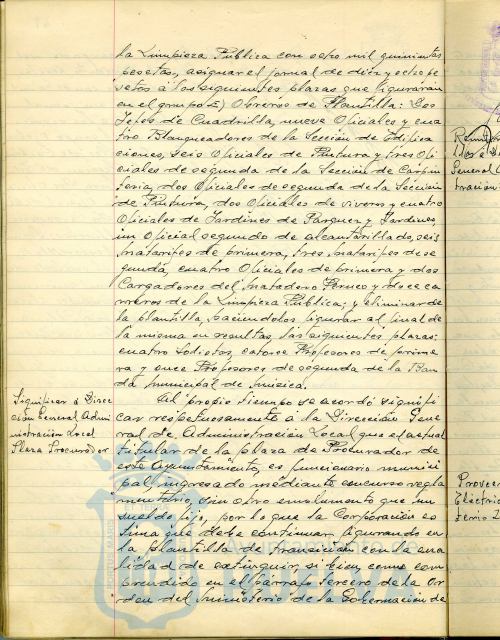 la Limpieza Pública con ocho mil quinientas
pesetas, asignar el jornal de diez y ocho pe
setas a los siguientes plazas que figuraran
en el grupo E) Obreros de Plantilla: Dos
Jefes de Cuadrilla, nueve Oficiales y cua
tro Blanqueadores de la Sección de Edifica
ciones, seis Oficiales de Pintura y tres Ofi
ciales de segunda de la Sección de Carpin
teria, dos Oficiales de segunda de la Sección
de Pintura, dos Oficiales de viveros y cuatro
Oficiales de Jardines de Parques y Jardines,
un Oficial segundo de alcantarillado, seis
matarifes de primera, tres matarifes de se
gunda, cuatro Oficiales de primera y dos
Cargadores del matadero y doce ca
rreros de la Limpieza Pública; y eliminar de
la plantilla, haciendolos figurar al final de
la misma en resultas, las siguientes plazas:
cuatro Solistas, catorce Profesores de prime
ra y once Profesores de segunda de la Ban
da municipal de música.
Al propio tiempo se acordó signifi
car respetuosamente á la Dirección Gene
ral de Administración Local que el actual
titular de la plaza de Procurador de
este Ayuntamiento, es funcionario munici
pal, ingresado mediante concurso regla
mentario, sin otro emolumento que un
sueldo fijo, por lo que la Corporación es
tima que debe continuar figurando en
la plantilla de transición con la cua
lidad de extinguir, si bien, como com
prendido en el párrafo tercero de la Or
den del ministerio de la Gobernación de
Significar á Direc
ción General Admi
nistración Local
Plaza Procurador
General
tración
Provee
Electric